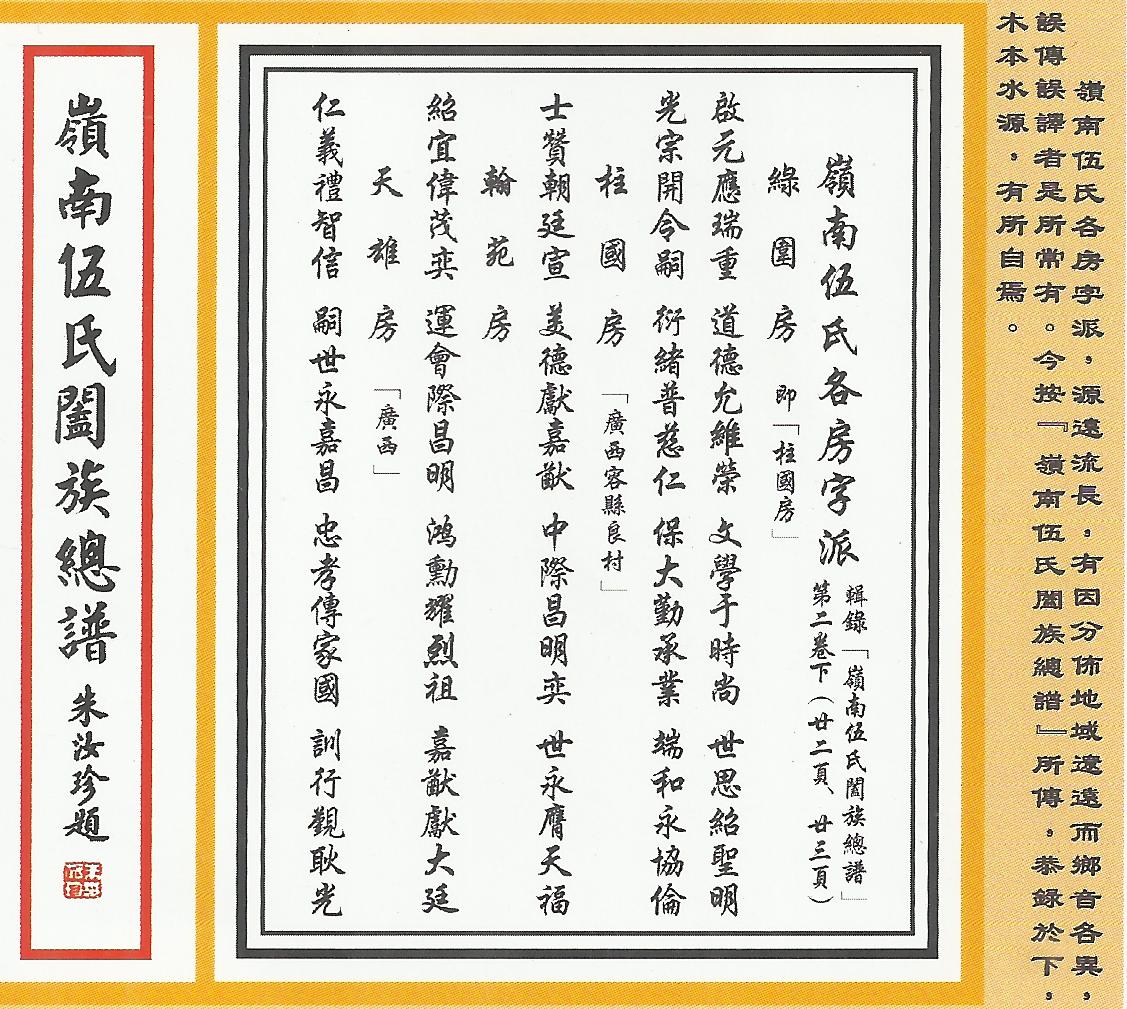 嶺南伍氏各房字派,源遠流長,有因分佈地域遼遠而鄉音各異,
誤傳誤譯者是所常有。今按『嶺南伍氏闔族總譜』所傳,恭錄於下,
木本水源,有所自焉。
嶺南伍氏各房字派
輯錄「嶺南伍氏闔族總譜」
第二卷下(廿二頁、廿三頁)
綠圍房 即「柱國房」
啟元應瑞重 道德允維榮 文學于時尚 世思紹聖明
光宗開令嗣 衍緒普慈仁 保大勤承業 端和永協倫
柱國房 「廣西容縣良村」
士贊朝廷宣 美德獻嘉猷 中際昌明奕 世永膺天福
翰苑房
紹宜偉茂奕 運會際昌明 鴻勳耀烈祖 嘉猷獻大廷
天雄房 「廣西」
仁義禮智信 嗣世永嘉昌 忠孝傳家國 訓行觀耿光
嶺南伍氏闔族總譜 朱汝珍題